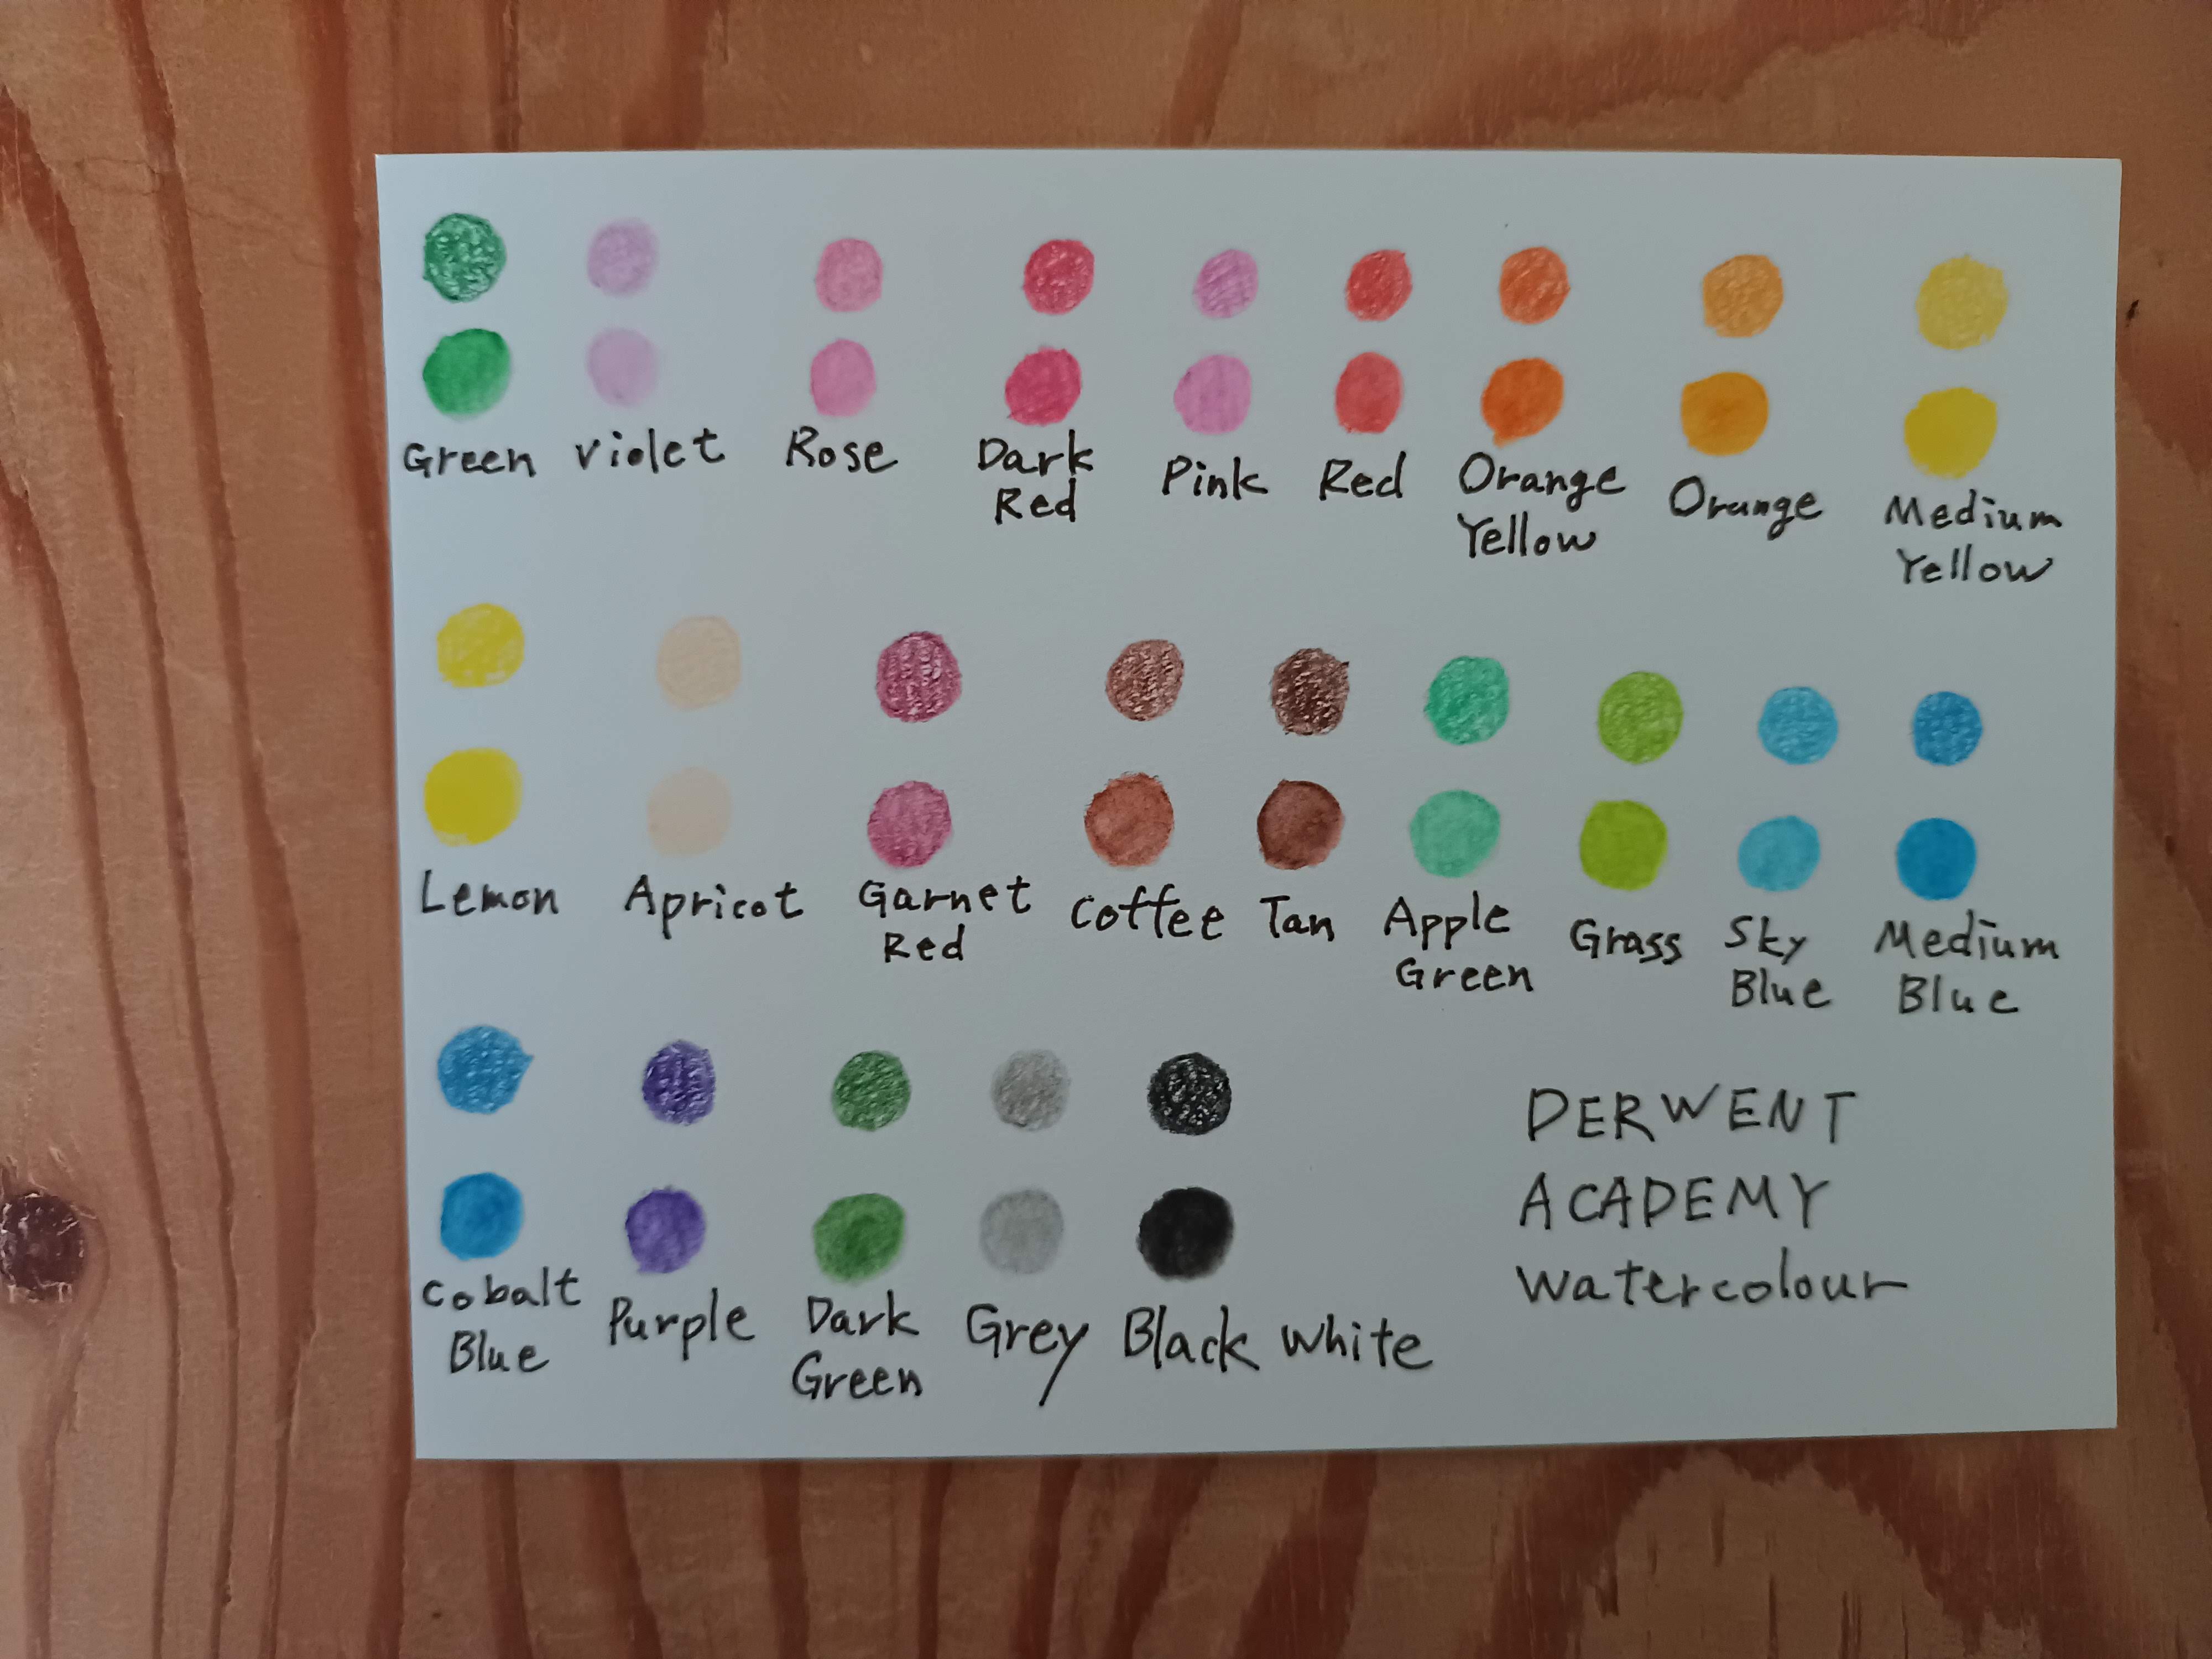 Green violet Rose Dark Red Pink Red Orange Yellow Orange Medium Yellow
Lemon Apricot Garnet Red Coffee Tan Apple Green Grass Sky Blue Medium Blue
Cobalt Blue Purple Dark Green Grey Black white
DERWENT
ACADEMY
watercolour